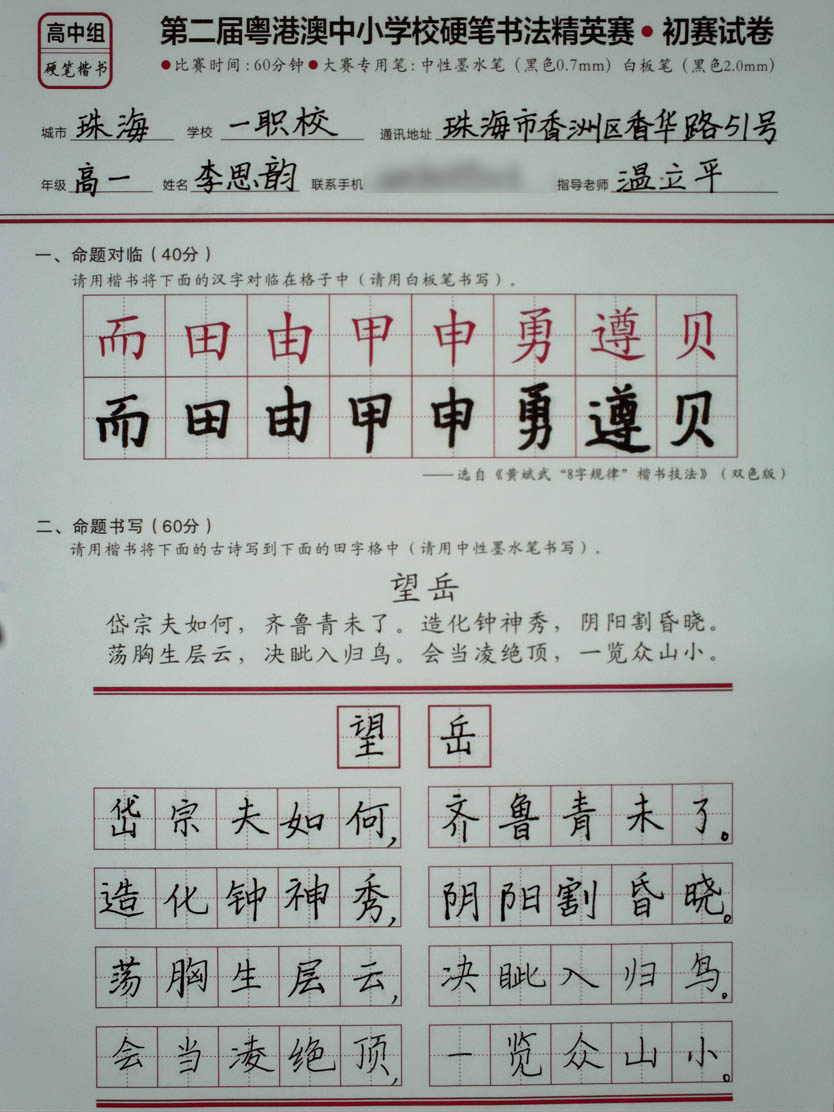 高中组
硬笔楷书
第二届粤港澳中小学校硬笔书法精英赛•初赛试卷
●比赛时间:60分钟●大赛专用笔:中性墨水笔(黑色0.7mm) 白板笔(黑色2.0mm)
城市 珠海 学校 一职校 通讯地址 珠海市香洲区香华路51号
年级 高一 姓名 李思韵 联系手机 指导老师 温立平
一、命题对临(40分)
请用楷书将下面的汉字对临在格子中(请用白板笔书写)。
而田由甲申勇遵贝
而田由甲申勇遵贝
——选自《黄斌武“8字规律”楷书技法》(双色版)
二、命题书写(60分)
请用楷书将下面的古诗写到下面的田字格中(请用中性墨水笔书写)。
望岳
岱宗夫如何,齐鲁青未了。造化钟神秀,阴阳割昏晓。
荡胸生层云,决眦入归鸟。会当凌绝顶,一览众山小。
望岳
岱宗夫如何,齐鲁青未了。
造化钟神秀,阴阳割昏晓。
荡胸生层云,决眦入归鸟。
会当凌绝顶,一览众山小。